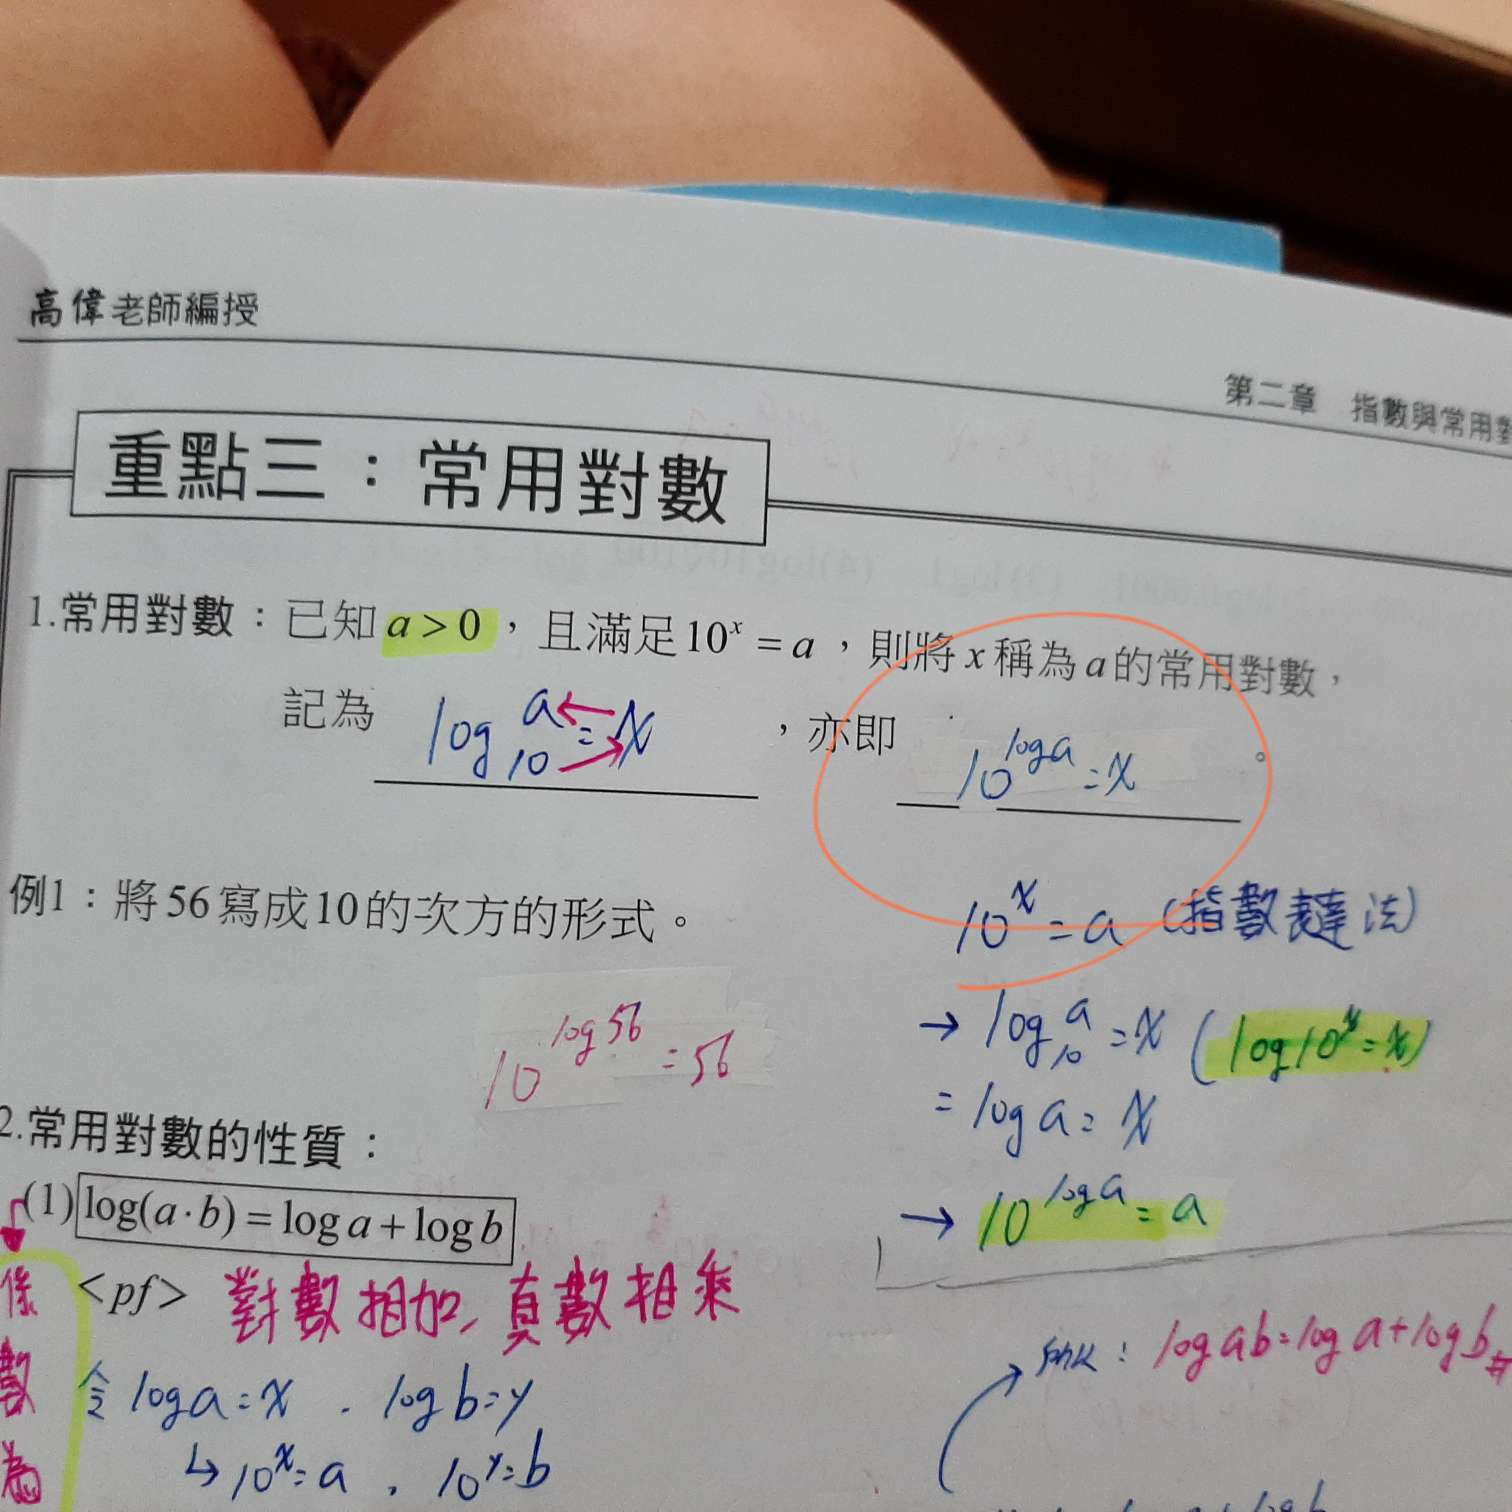 高偉老師編授
第二章 指數與常用對
重點三：常用對數
1.常用對數：已知a>0，且滿足10^x=a，則將x稱為a的常用對數，
記為 log_10 a = x ，亦即 10^(log a) = x 。
例1：將56寫成10的次方的形式。
10^(log56) = 56
10^x = a (指數表達法)
→ log_10 a = x (log10^x = x)
= log a = x
→ 10^(log a) = a
2.常用對數的性質：
(1) log(a·b) = log a + log b
<pf> 對數相加，真數相乘
係數為
令 log a = x . log b = y
↳ 10^x = a , 10^y = b
所以: log ab = log a + log b #